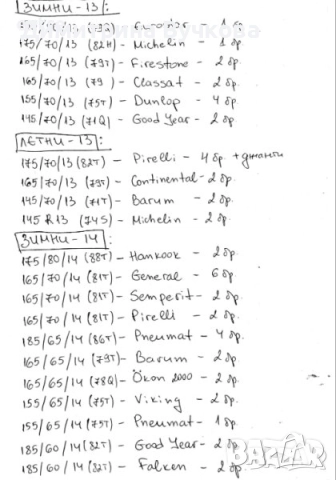 ЗИМНИ - 13:
1 бр
175/70/13 (82H) - Michelin - 1 бр.
165/70/13 (79T) - Firestone - 2 бр.
165/70/13 (79 ) - Classat - 2 бр.
155/70/13 (75T) - Dunlop - 4 бр.
145/70/13 (71Q) - Good Year - 2 бр.
ЛЕТНИ - 13:
175/70/13 (82T) - Pirelli - 4 бр. + джанти
165/70/13 (79T) - Continental - 2 бр.
145/70/13 (71T) - Barum - 2 бр.
145 R13 (74S) - Michelin - 2 бр.
ЗИМНИ - 14:
175/80/14 (88T) - Hankook - 2 бр.
165/70/14 (81T) - General - 6 бр.
165/70/14 (81T) - Semperit - 2 бр.
165/70/14 (81T) - Pirelli - 2 бр.
185/65/14 (86T) - Pneumat - 4 бр.
165/65/14 (79T) - Barum - 2 бр.
165/65/14 (78Q) - Ökon 2000 - 2 бр.
155/65/14 (75T) - Viking - 2 бр.
155/65/14 (75T) - Pneumat - 1 бр.
185/60/14 (82T) - Good Year - 2 бр.
185/60/14 (82T) - Falken - 2 бр
bazar